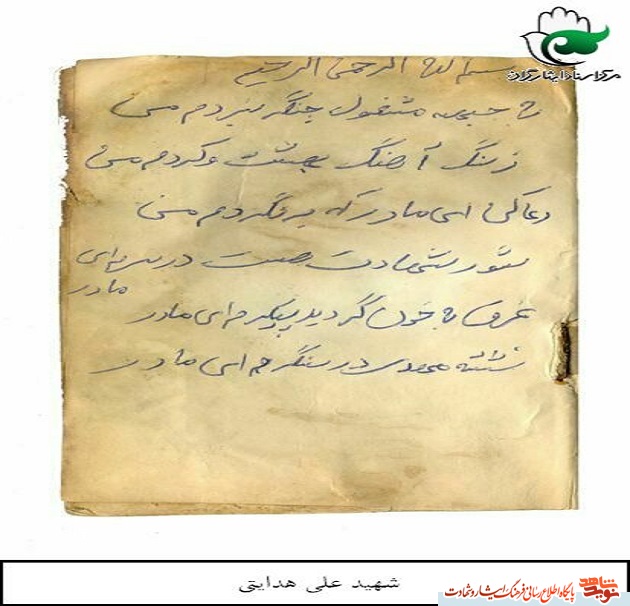 مرکز اسناد ایثارگران
بسم الله الرحمن الرحیم
با جبهه مشغول جنگ نبردم من
زنگ آهنگ بهشت وکردم من
دعا کن ای مادر که برنگردم من
شور شهادت هست در سر ای مادر
غرق با خون گردید پیکرم ای مادر
تشنه مهدی در سنگرم ای مادر
شهید علی هدایتی
نوید شاهد پایگاه اطلاع رسانی فرهنگ ایثار و شهادت